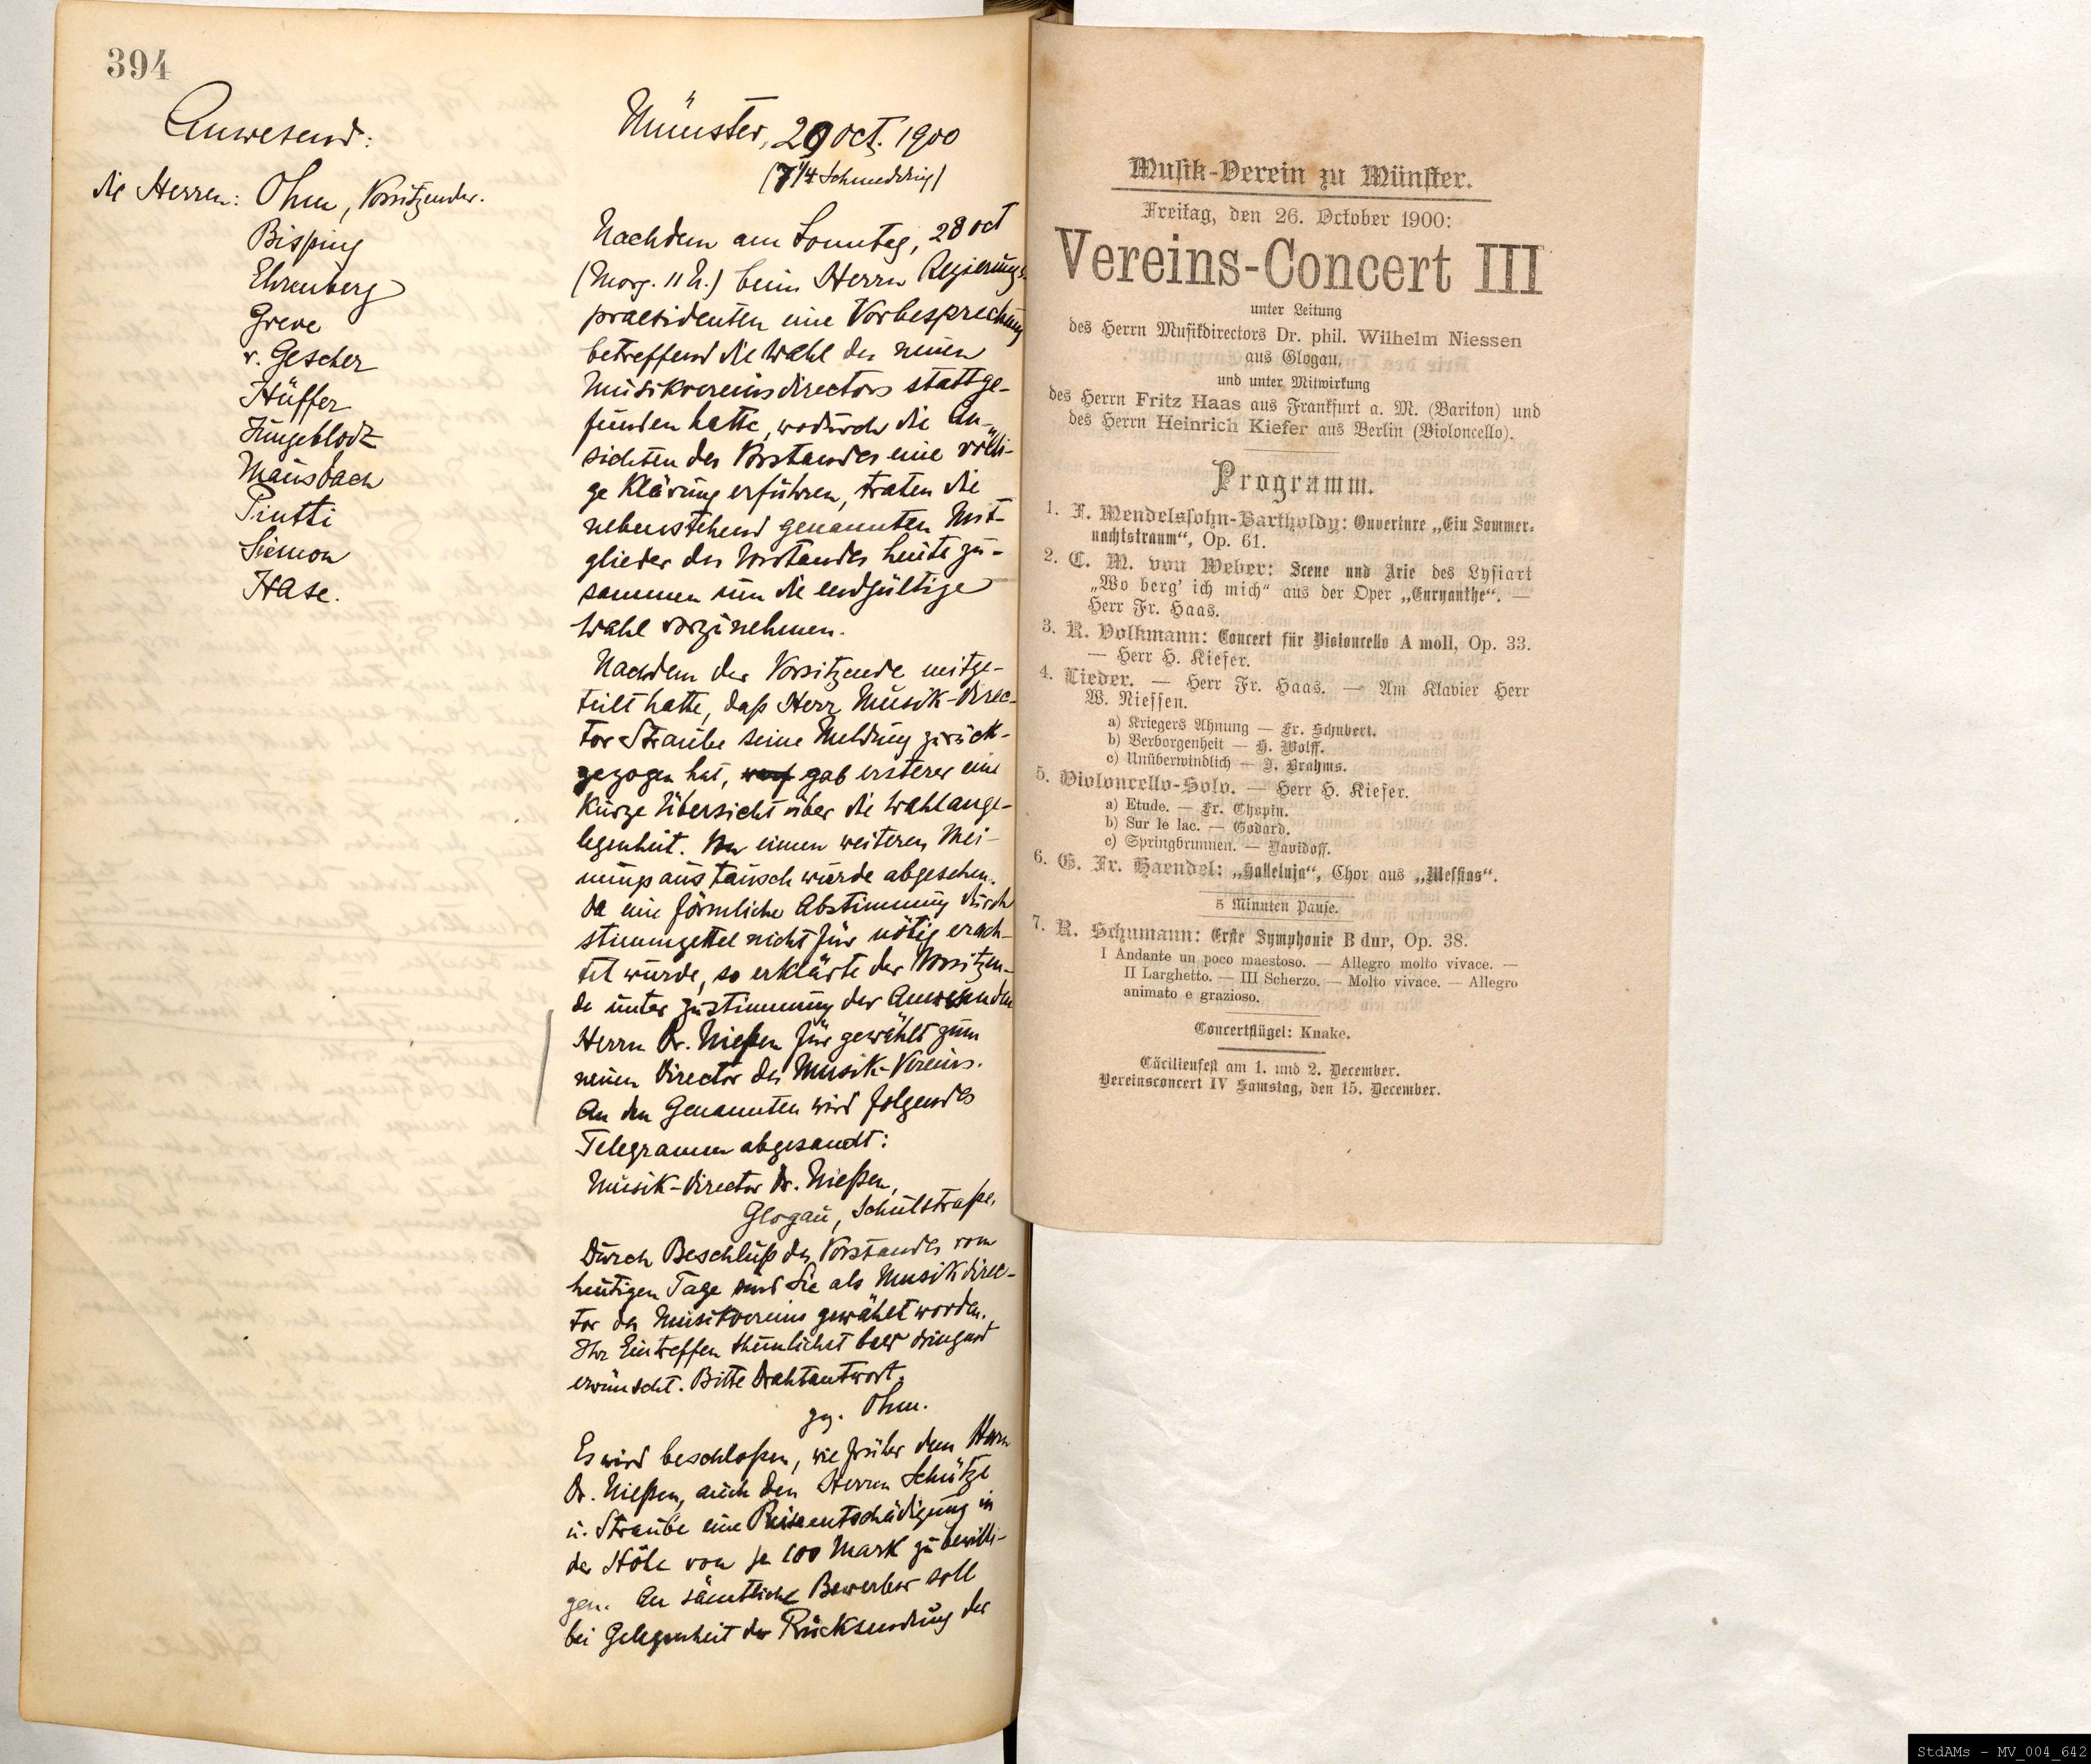 394
Anwesend:
die Herren: Ohm, Vorsitzender.
Bisping
Ehrenberg
Greve
v. Gescher
Hüffer
Jungeblodt
Mausbach
Piutti
Siemon
Hase.
Münster, 29 Oct. 1900
(7 1/4 Schmedding)
Nachdem am Sonntag, 28 Oct
(Morg. 11 U.) beim Herrn Regierungs-
praesidenten eine Vorbesprechung
betreffend die Wahl des neuen
Musikvereinsdirectors stattge-
funden hatte, wodurch die An-
sichten des Vorstandes eine völli-
ge Klärung erfuhren, traten die
nebenstehend genannten Mit-
glieder des Vorstandes heute zu-
sammen um die endgültige
Wahl vorzunehmen.
Nachdem der Vorsitzende mitge-
teilt hatte, daß Herr Musik-Direc-
tor Straube seine Meldung zurück-
gezogen hat, gab ersterer eine
kurze Übersicht über die Wahlange-
legenheit. Von einem weiteren Mei-
nungsaustausch wurde abgesehen.
Da eine förmliche Abstimmung durch
Stimmzettel nicht für nötig erach-
tet wurde, so erklärte der Vorsitzen-
de unter Zustimmung der Anwesenden
Herrn Dr. Nießen für gewählt zum
neuen Director des Musik-Vereins.
An den Genannten wird folgendes
Telegramm abgesandt:
Musik-Director Dr. Nießen,
Glogau, Schulstraße.
Durch Beschluß des Vorstandes vom
heutigen Tage sind Sie als Musikdirec-
tor des Musikvereins gewählt worden.
Ihr Eintreffen thunlichst bald dringend
erwünscht. Bitte Drahtantwort.
gez. Ohm.
Es wird beschloßen, wie früher dem Herrn
Dr. Nießen, auch den Herren Schütze
u. Straube eine Reiseentschädigung in
der Höhe von je 100 Mark zu bewilli-
gen. An sämtliche Bewerber soll
bei Gelegenheit der Rücksendung der
Musik-Verein zu Münster.
Freitag, den 26. October 1900:
Vereins-Concert III
unter Leitung
des Herrn Musikdirectors Dr. phil. Wilhelm Niessen
aus Glogau,
und unter Mitwirkung
des Herrn Fritz Haas aus Frankfurt a. M. (Bariton) und
des Herrn Heinrich Kiefer aus Berlin (Violoncello).
Programm.
1. F. Mendelssohn-Bartholdy: Ouverture „Ein Sommer-
nachtstraum“, Op. 61.
2. C. M. von Weber: Scene und Arie des Lysiart
„Wo berg' ich mich“ aus der Oper „Euryanthe“. —
Herr Fr. Haas.
3. R. Volkmann: Concert für Violoncello A moll, Op. 33.
— Herr H. Kiefer.
4. Lieder. — Herr Fr. Haas. — Am Klavier Herr
W. Niessen.
a) Kriegers Ahnung — Fr. Schubert.
b) Verborgenheit — H. Wolff.
c) Unüberwindlich — J. Brahms.
5. Violoncello-Solo. — Herr H. Kiefer.
a) Etude. — Fr. Chopin.
b) Sur le lac. — Godard.
c) Springbrunnen. — Davidoff.
6. G. Fr. Haendel: „Halleluja“, Chor aus „Messias“.
5 Minuten Pause.
7. R. Schumann: Erste Symphonie B dur, Op. 38.
I Andante un poco maestoso. — Allegro molto vivace. —
II Larghetto. — III Scherzo. — Molto vivace. — Allegro
animato e grazioso.
Concertflügel: Knake.
Cäcilienfest am 1. und 2. December.
Vereinsconcert IV Samstag, den 15. December.
StdAMs - MV_004_642